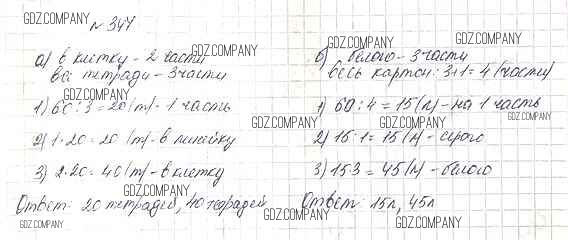 № 347
а) в клетку - 2 части
все тетради - 3 части
1) 60 : 3 = 20 (т) - 1 часть
2) 1·20 = 20 (т) - в линейку
3) 2·20 = 40 (т) - в клетку
Ответ: 20 тетрадей, 40 тетрадей
б) белого - 3 части
весь картон: 3+1 = 4 (части)
1) 60 : 4 = 15 (л) - на 1 часть
2) 15·1 = 15 (л) - серого
3) 15·3 = 45 (л) - белого
Ответ: 15л, 45л
GDZ.COMPANY
GDZ.COMPANY
GDZ.COMPANY
GDZ.COMPANY
GDZ.COMPANY
GDZ.COMPANY
GDZ.COMPANY
GDZ.COMPANY
GDZ.COMPANY
GDZ.COMPANY
GDZ.COMPANY
GDZ.COMPANY